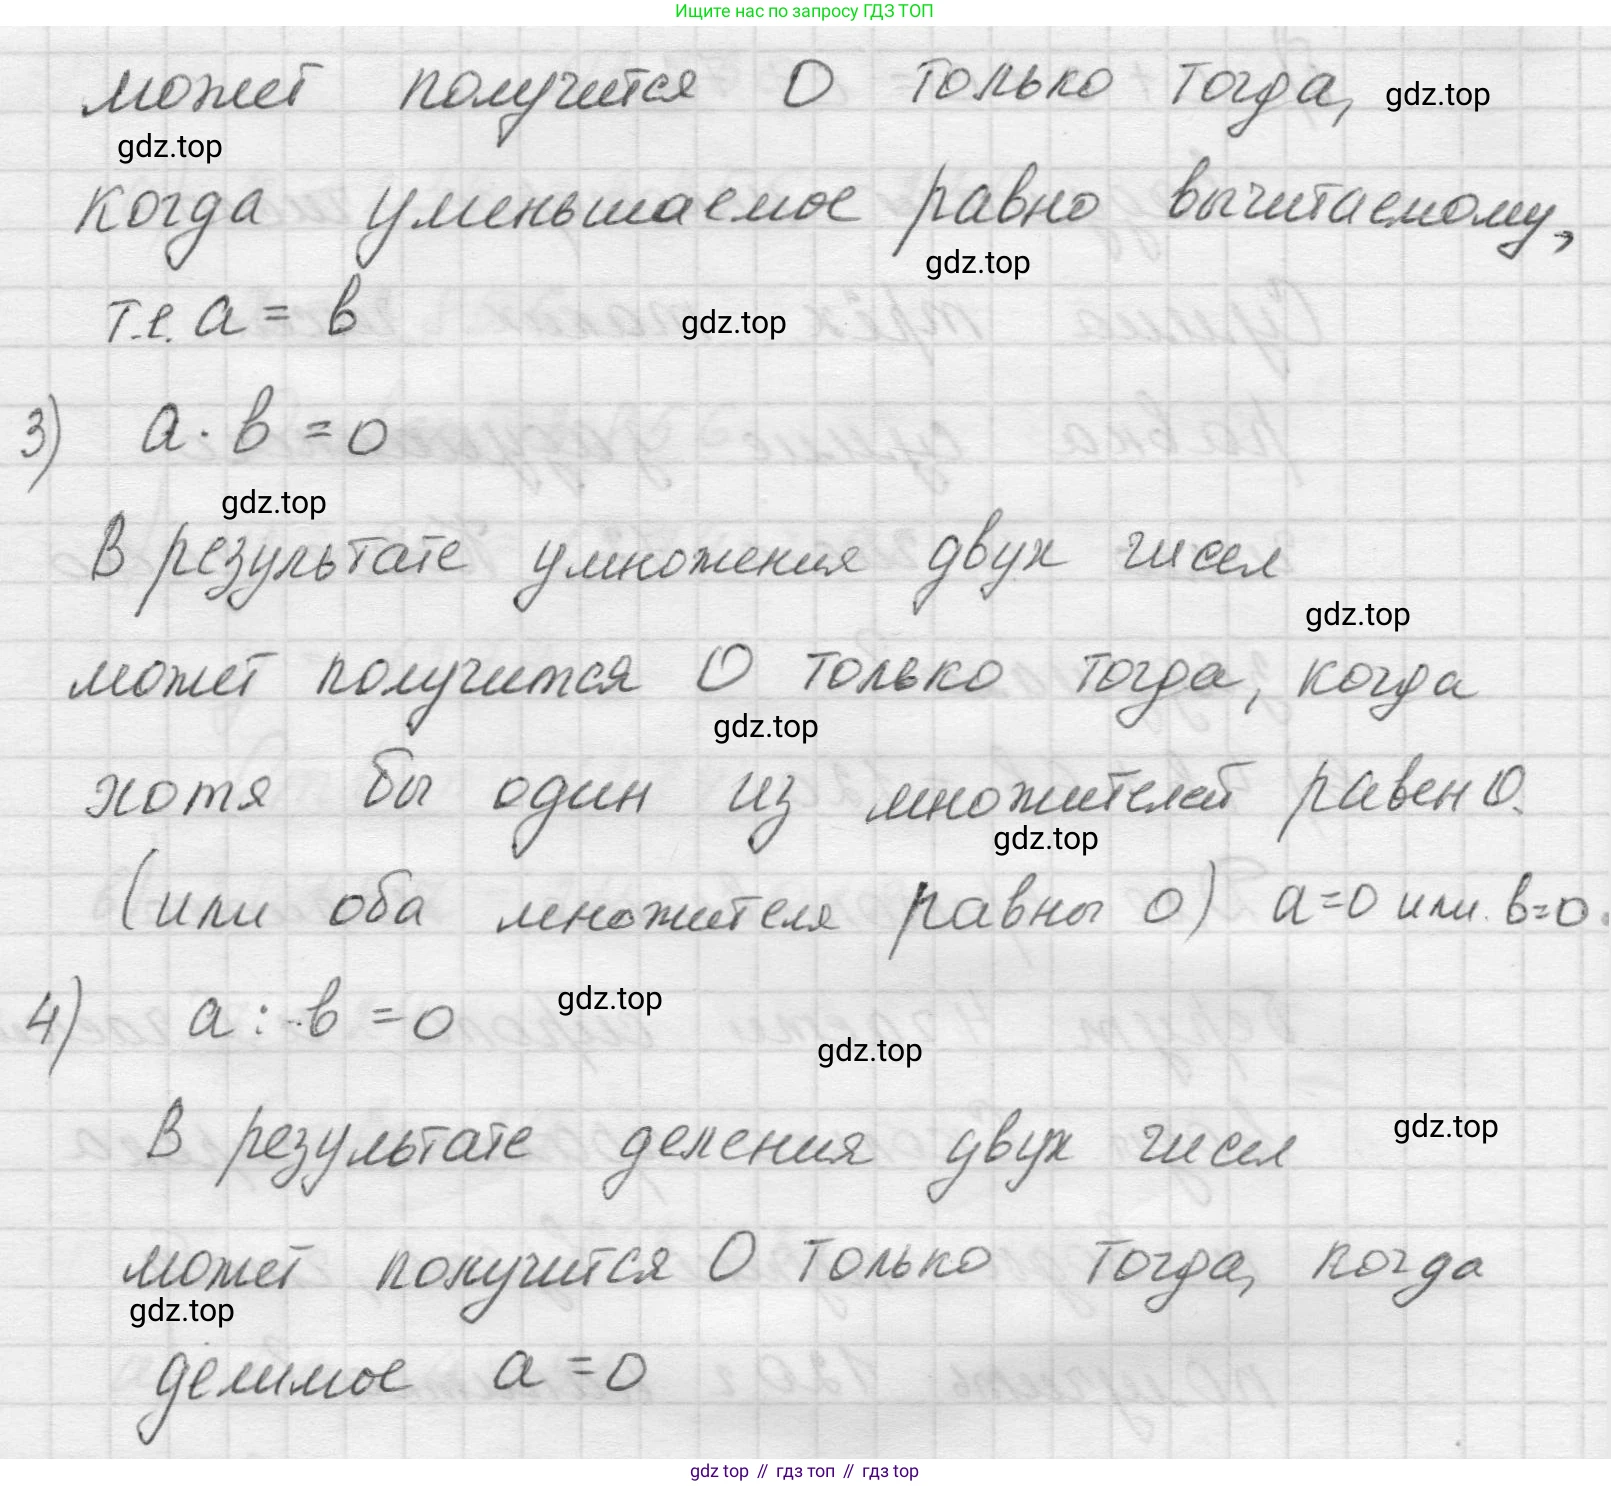 Ищите нас по запросу ГДЗ ТОП
может получится 0 только тогда, gdz.top
gdz.top
когда уменьшаемое равно вычитаемому,
gdz.top
т.е. a = b gdz.top
3) a · b = 0
gdz.top
В результате умножения двух чисел
gdz.top
может получится 0 только тогда, когда
gdz.top
хотя бы один из множителей равен 0.
gdz.top
(или оба множителя равны 0) a=0 или b=0.
4) a : b = 0 gdz.top
gdz.top
В результате деления двух чисел gdz.top
может получится 0 только тогда, когда
gdz.top
делимое a = 0
gdz top // гдз топ // gdz top